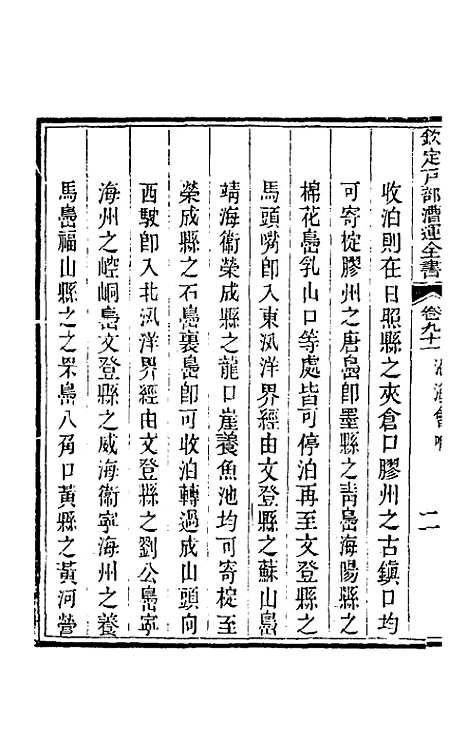 欽定戶部漕運全書
卷九十一
二
收泊則在日照縣之夾倉口膠州之古鎮口均
可寄椗膠州之唐島卽墨縣之靑島海陽縣之
棉花島乳山口等處皆可停泊再至文登縣之
馬頭嘴卽入東汛洋界經由文登縣之蘇山島
靖海衞榮成縣之龍口崖養魚池均可寄椗至
榮成縣之石島裏島卽可收泊轉過成山頭向
西駛卽入北汛洋界經由文登縣之劉公島寧
海州之崆峒島文登縣之威海衞寧海州之養
馬島福山縣之之罘島八角口黃縣之黃河營